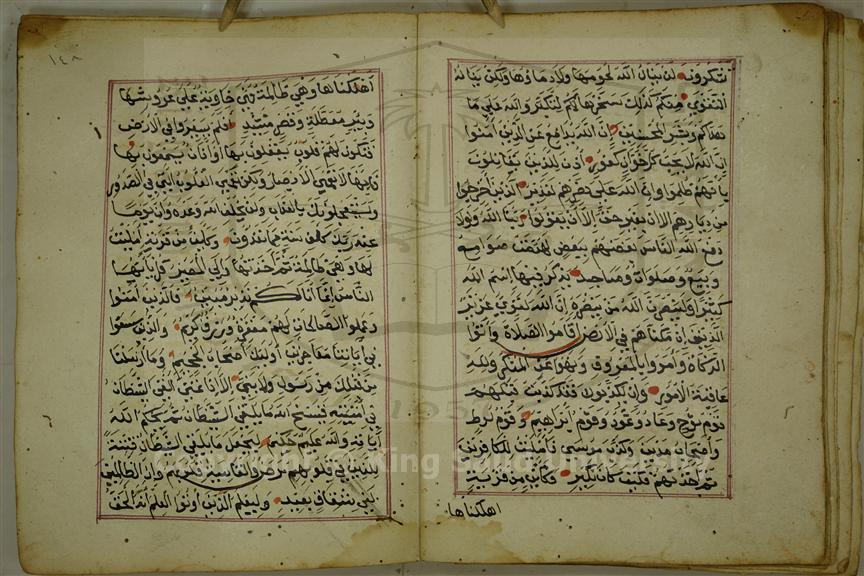 تشكرون لن ينال الله لحومها ولا دماؤها ولكن يناله
التقوى منكم كذلك سخرها لكم لتكبروا الله على ما
هداكم وبشر المحسنين إن الله يدافع عن الذين امنوا
ان الله لا يحب كل خوان كفور اذن للذين يقاتلون
بانهم ظلموا وإن الله على نصرهم لقدير الذين اخرجوا
من ديارهم بغير حق إلا أن يقولوا ربنا الله ولولا
دفع الله الناس بعضهم ببعض لهدمت صوامع
وبيع وصلوات ومساجد يذكر فيها اسم الله
كثيرا ولينصرن الله من ينصره إن الله لقوي عزيز
الذين إن مكناهم في الارض اقاموا الصلاة واتوا
الزكاة وامروا بالمعروف ونهوا عن المنكر ولله
عاقبة الأمور وإن يكذبوك فقد كذبت قبلهم
قوم نوح وعاد وثمود وقوم إبراهيم وقوم لوط
وأصحاب مدين وكذب موسى فأمليت للكافرين
ثم اخذتهم فكيف كان نكير فكاين من قرية
اهلكناها
١٤٨
أهلكناها وهي ظالمة فهي خاوية على عروشها
وبئر معطلة وقصر مشيد افلم يسيروا في الارض
فتكون لهم قلوب يعقلون بها أو آذان يسمعون بها
فإنها لا تعمى الأبصار ولكن تعمى القلوب التي في الصدور
ويستعجلونك بالعذاب ولن يخلف الله وعده وإن يوما
عند ربك كألف سنة مما تعدون وكأين من قرية أمليت
لها وهي ظالمة ثم أخذتها وإلي المصير قل يا أيها
الناس إنما أنا لكم نذير مبين فالذين آمنوا
وعملوا الصالحات لهم مغفرة ورزق كريم والذين سعوا
في آياتنا معاجزين أولئك أصحاب الجحيم وما أرسلنا
من قبلك من رسول ولا نبي إلا إذا تمنى ألقى الشيطان
في أمنيته فينسخ الله ما يلقي الشيطان ثم يحكم الله
آياته والله عليم حكيم ليجعل ما يلقي الشيطان فتنة
للذين في قلوبهم مرض والقاسية قلوبهم وإن الظالمين
لفي شقاق بعيد وليعلم الذين أوتوا العلم أنه الحق
Copyright © King Saud University
1957